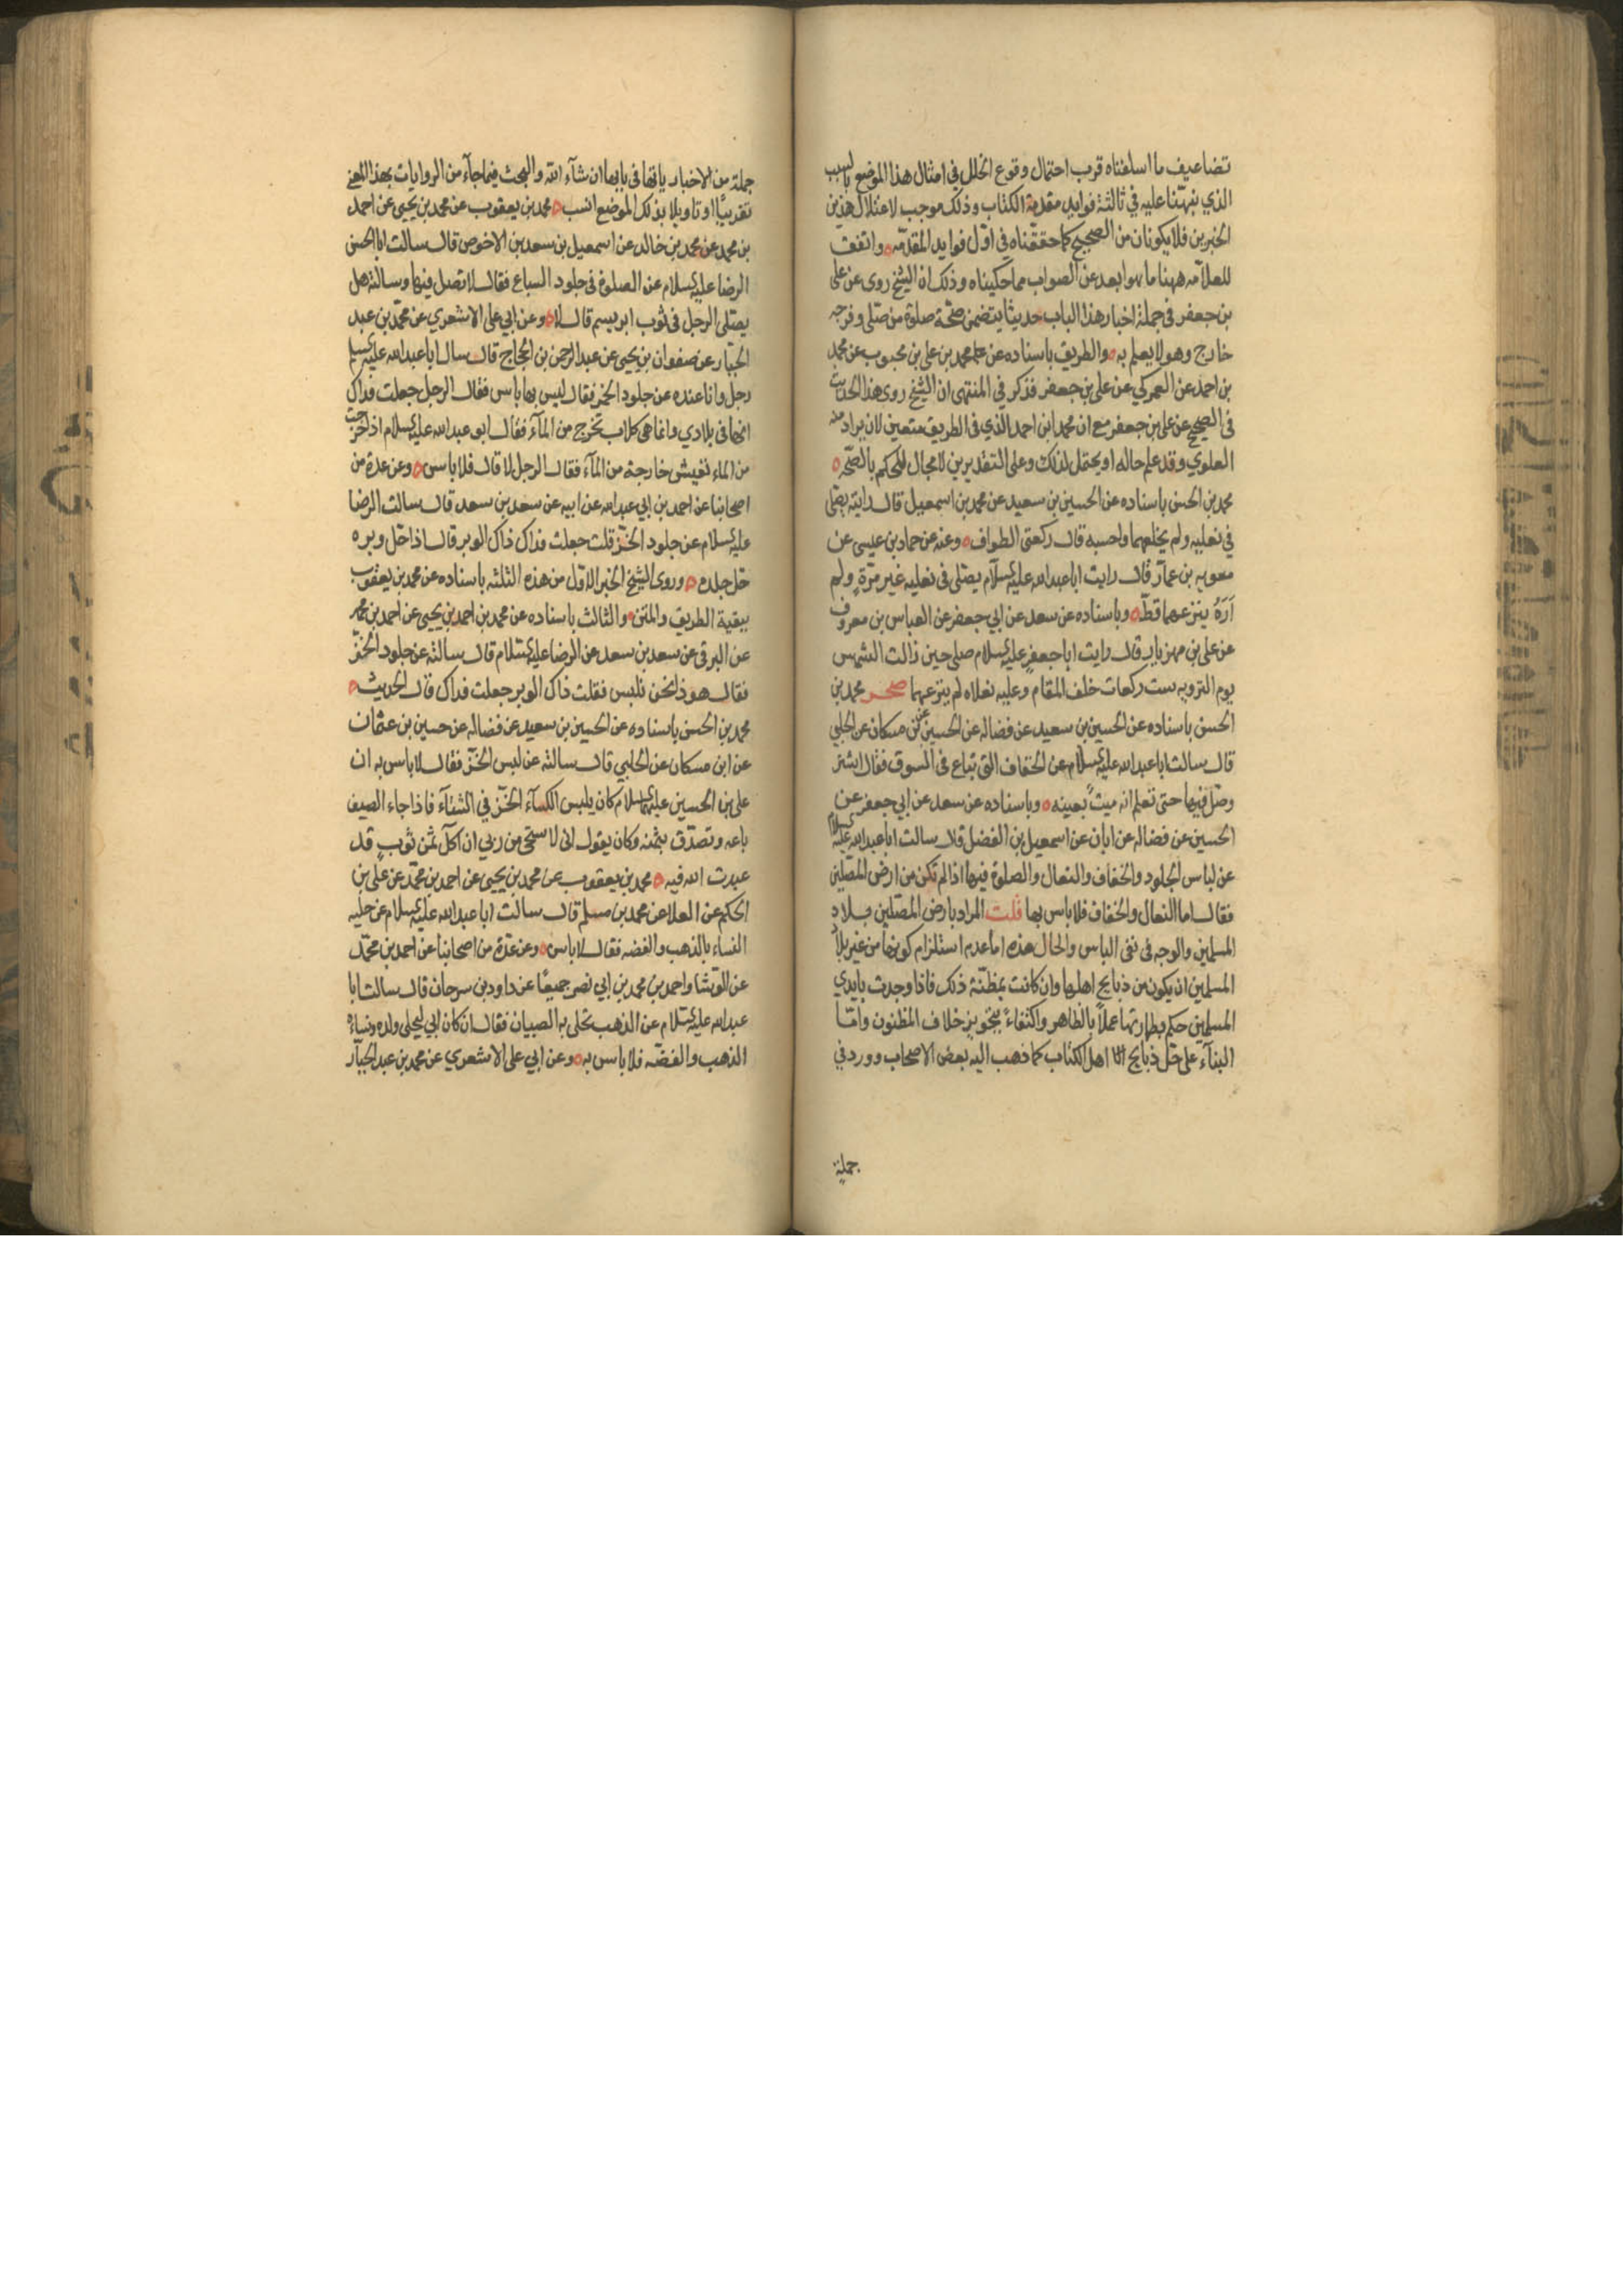 تضاعيف ما اسلفناه قرب احتمال وقوع الخلل في امثال هذا الموضع بالسبب
الذي نبهّنا عليه في ثالثة فوايد مقدمة الكتاب وذلك موجب لاعتلال هذين
الخبرين فلا يكونان من الصحيح كما حققناه في اوّل فوايد المقدمّه ٥ واتفق
للعلامه ههنا ما هو ابعد عن الصواب مما حكيناه وذلك ان الشيخ روى عن على
بن جعفر في جملة اخبار هذا الباب حديثا يتضمن صحّة صلوة من صلّى وفرجه
خارج وهو لا يعلم به ٥ والطريق باسناده عن محمد بن على بن محبوب عن محمد
بن احمد عن العمركي عن على بن جعفر فذكر في المنتهى ان الشيخ روى هذا الحديث
فى الصحيح عن على بن جعفر مع ان محمد ابن احمد الذي فى الطريق متعين لان يراد منه
العلوي وقد علم حاله او محتمل لذلك وعلى التقديرين لا مجال للحكم بالصّحه ٥
محمد بن الحسن باسناده عن الحسين بن سعيد عن محمد بن اسمعيل قال رايته يصّلى
في نعليه ولم يخلعهما واحسبه قال ركعتى الطواف ٥ وعنه عن حماد بن عيسى عن
معويه بن عمار قال رايت ابا عبد الله عليه السلام يصّلى فى نعليه غير مرّة ولم
اَرَهُ ينزعهما قطّ ٥ وباسناده عن سعد عن ابي جعفر عن العباس بن معروف
عن على بن مهزيار قال رايت ابا جعفر عليه السلام صلى حين زالت الشمس
يوم الترويه ست ركعات خلف المقام وعليه نعلاه لم ينزعهما صحر محمد بن
الحسن باسناده عن الحسين بن سعيد عن فضاله عن الحسين عن ابن مسكان عن الحلبي
قال سالت ابا عبد الله عليه السلام عن الخفاف التى تباع فى السوق فقال اشتر
وصّل فيها حتى تعلم انه ميتٌ بعينه ٥ وباسناده عن سعد عن ابي جعفر عن
الحسين عن فضاله عن ابان عن اسمعيل بن الفضل قال سالت ابا عبد الله عليه السلام
عن لباس الجلود والخفاف والنعال والصلوة فيها اذا لم تكن من ارض المصّلين
فقال اما النعال والخفاف فلا باس بها قلت المراد بارض المصّلين بلاد
المسلمين والوجه فى نفى الباس والحال هذه اما عدم استلزام كونها من غير بلاد
المسلمين ان يكون من ذبايح اهلها وان كانت بمظنّة ذلك فاذا وجدت بايدي
المسلمين حكم بطهارتها عملاً بالظاهر واكتفاءً بتجويز خلاف المظنون وامّا
البنآء على حلّ ذبايح اهل الكتاب كما ذهب اليه بعض الاصحاب وورد في
جملة
جملة من الاخبار ياتها فى بابها ان شآء الله والبحث فيما جآء من الروايات بهذا المعنى
تقريبًا او تاويلا بذلك الموضع انسب ٥ محمد بن يعقوب عن محمد بن يحيى عن احمد
بن محمد عن محمد بن خالد عن اسمعيل بن سعد بن الاحوص قال سالت ابا الحسن
الرضا عليه السلام عن الصلوة فى جلود السباع فقال لا تصل فيها وسالته هل
يصّلى الرجل فى ثوب ابريسم قال لا ٥ وعن ابي على الاشعري عن محمّد بن عبد
الجبّار عن صفوان بن يحيى عن عبد الرحمن بن الحجاج قال سال ابا عبد الله عليه السلم
رجل وانا عنده عن جلود الخز فقال ليس بها باس فقال الرجل جعلت فداك
انها فى بلادي وانما هى كلاب تخرج من المآء فقال ابو عبد الله عليه السلام اذا خرجت
من الماء تعيش خارجة من المآء فقال الرجل لا قال فلا باس ٥ وعن عدة من
اصحابنا عن احمد بن ابي عبد الله عن ابيه عن سعد بن سعد قال سالت الرضا
عليه السلام عن جلود الخزّ قلت جعلت فداك ذاك الوبر قال اذا حّل وبره
حّل جلده ٥ وروى الشيخ الخبر الاوّل من هذه الثلثه باسناده عن محمد بن يعقوب
ببقية الطريق والمتن ٥ والثالث باسناده عن محمد بن احمد بن يحيى عن احمد بن محمد
عن البرقى عن سعد بن سعد عن الرضا عليه السّلام قال سالته عن جلود الخزّ
فقال هوذا نحن نلبس فقلت ذاك الوبر جعلت فداك قال الحديث ٥
محمد بن الحسن باسناده عن الحسين بن سعيد عن فضاله عن حسين بن عثمان
عن ابن مسكان عن الحلبي قال سالته عن لبس الخزّ فقال لا باس به ان
على بن الحسين عليهما السلام كان يلبس الكسآء الخزّ في الشتآء فاذا جاء الصيف
باعه وتصدّق بثمنه وكان يقول انى لاستحى من ربي ان اكل ثمن ثوبٍ قد
عبدت الله فيه ٥ محمد بن يعقوب عن محمد بن يحيى عن احمد بن محمّد عن على بن
الحكم عن العلا عن محمد بن مسلم قال سالت ابا عبد الله عليه السلام عن حليه
النساء بالذهب والفضه فقال لا باس ٥ وعن عدّة من اصحابنا عن احمد بن محمّد
عن الوشّا واحمد بن محمد بن ابي نصر جميعًا عن داود بن سرحان قال سالت ابا
عبد الله عليه السّلام عن الذهب تحلى به الصبيان فقال ان كان ابي ليحلى ولده ونساءه
الذهب والفضّه فلا باس به ٥ وعن ابي على الاشعري عن محمد بن عبد الجبّار